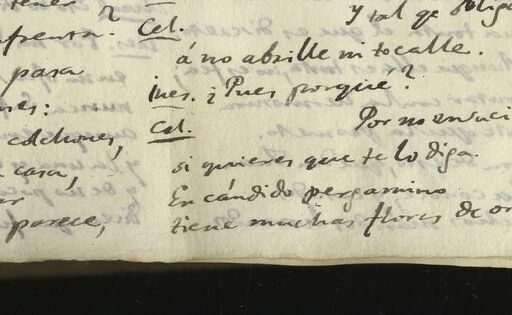 tener
afrenta?
pasa
colchones,
casa,
parece,
Cel. y tal qe obliga
á no abrille ni tocalle.
Ines. ¿Pues porqué?
Cel. Por no
si quieres que te lo diga.
En cándido pergamino
tiene muchas flores de or